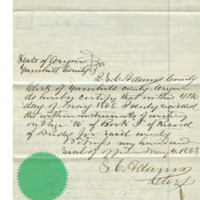 State of Oregon
Yamhill County } ss
I S. C. Adams County
Clerk of Yamhill County, Oregon
do hereby certify that on the 4th
day of May 1868 I duly recorded
the within instrument of writing
on Page 16 of Book I of Record
of Deeds for said county
Witness my hand and
seal of office May 4, 1868
S C Adams
Clerk